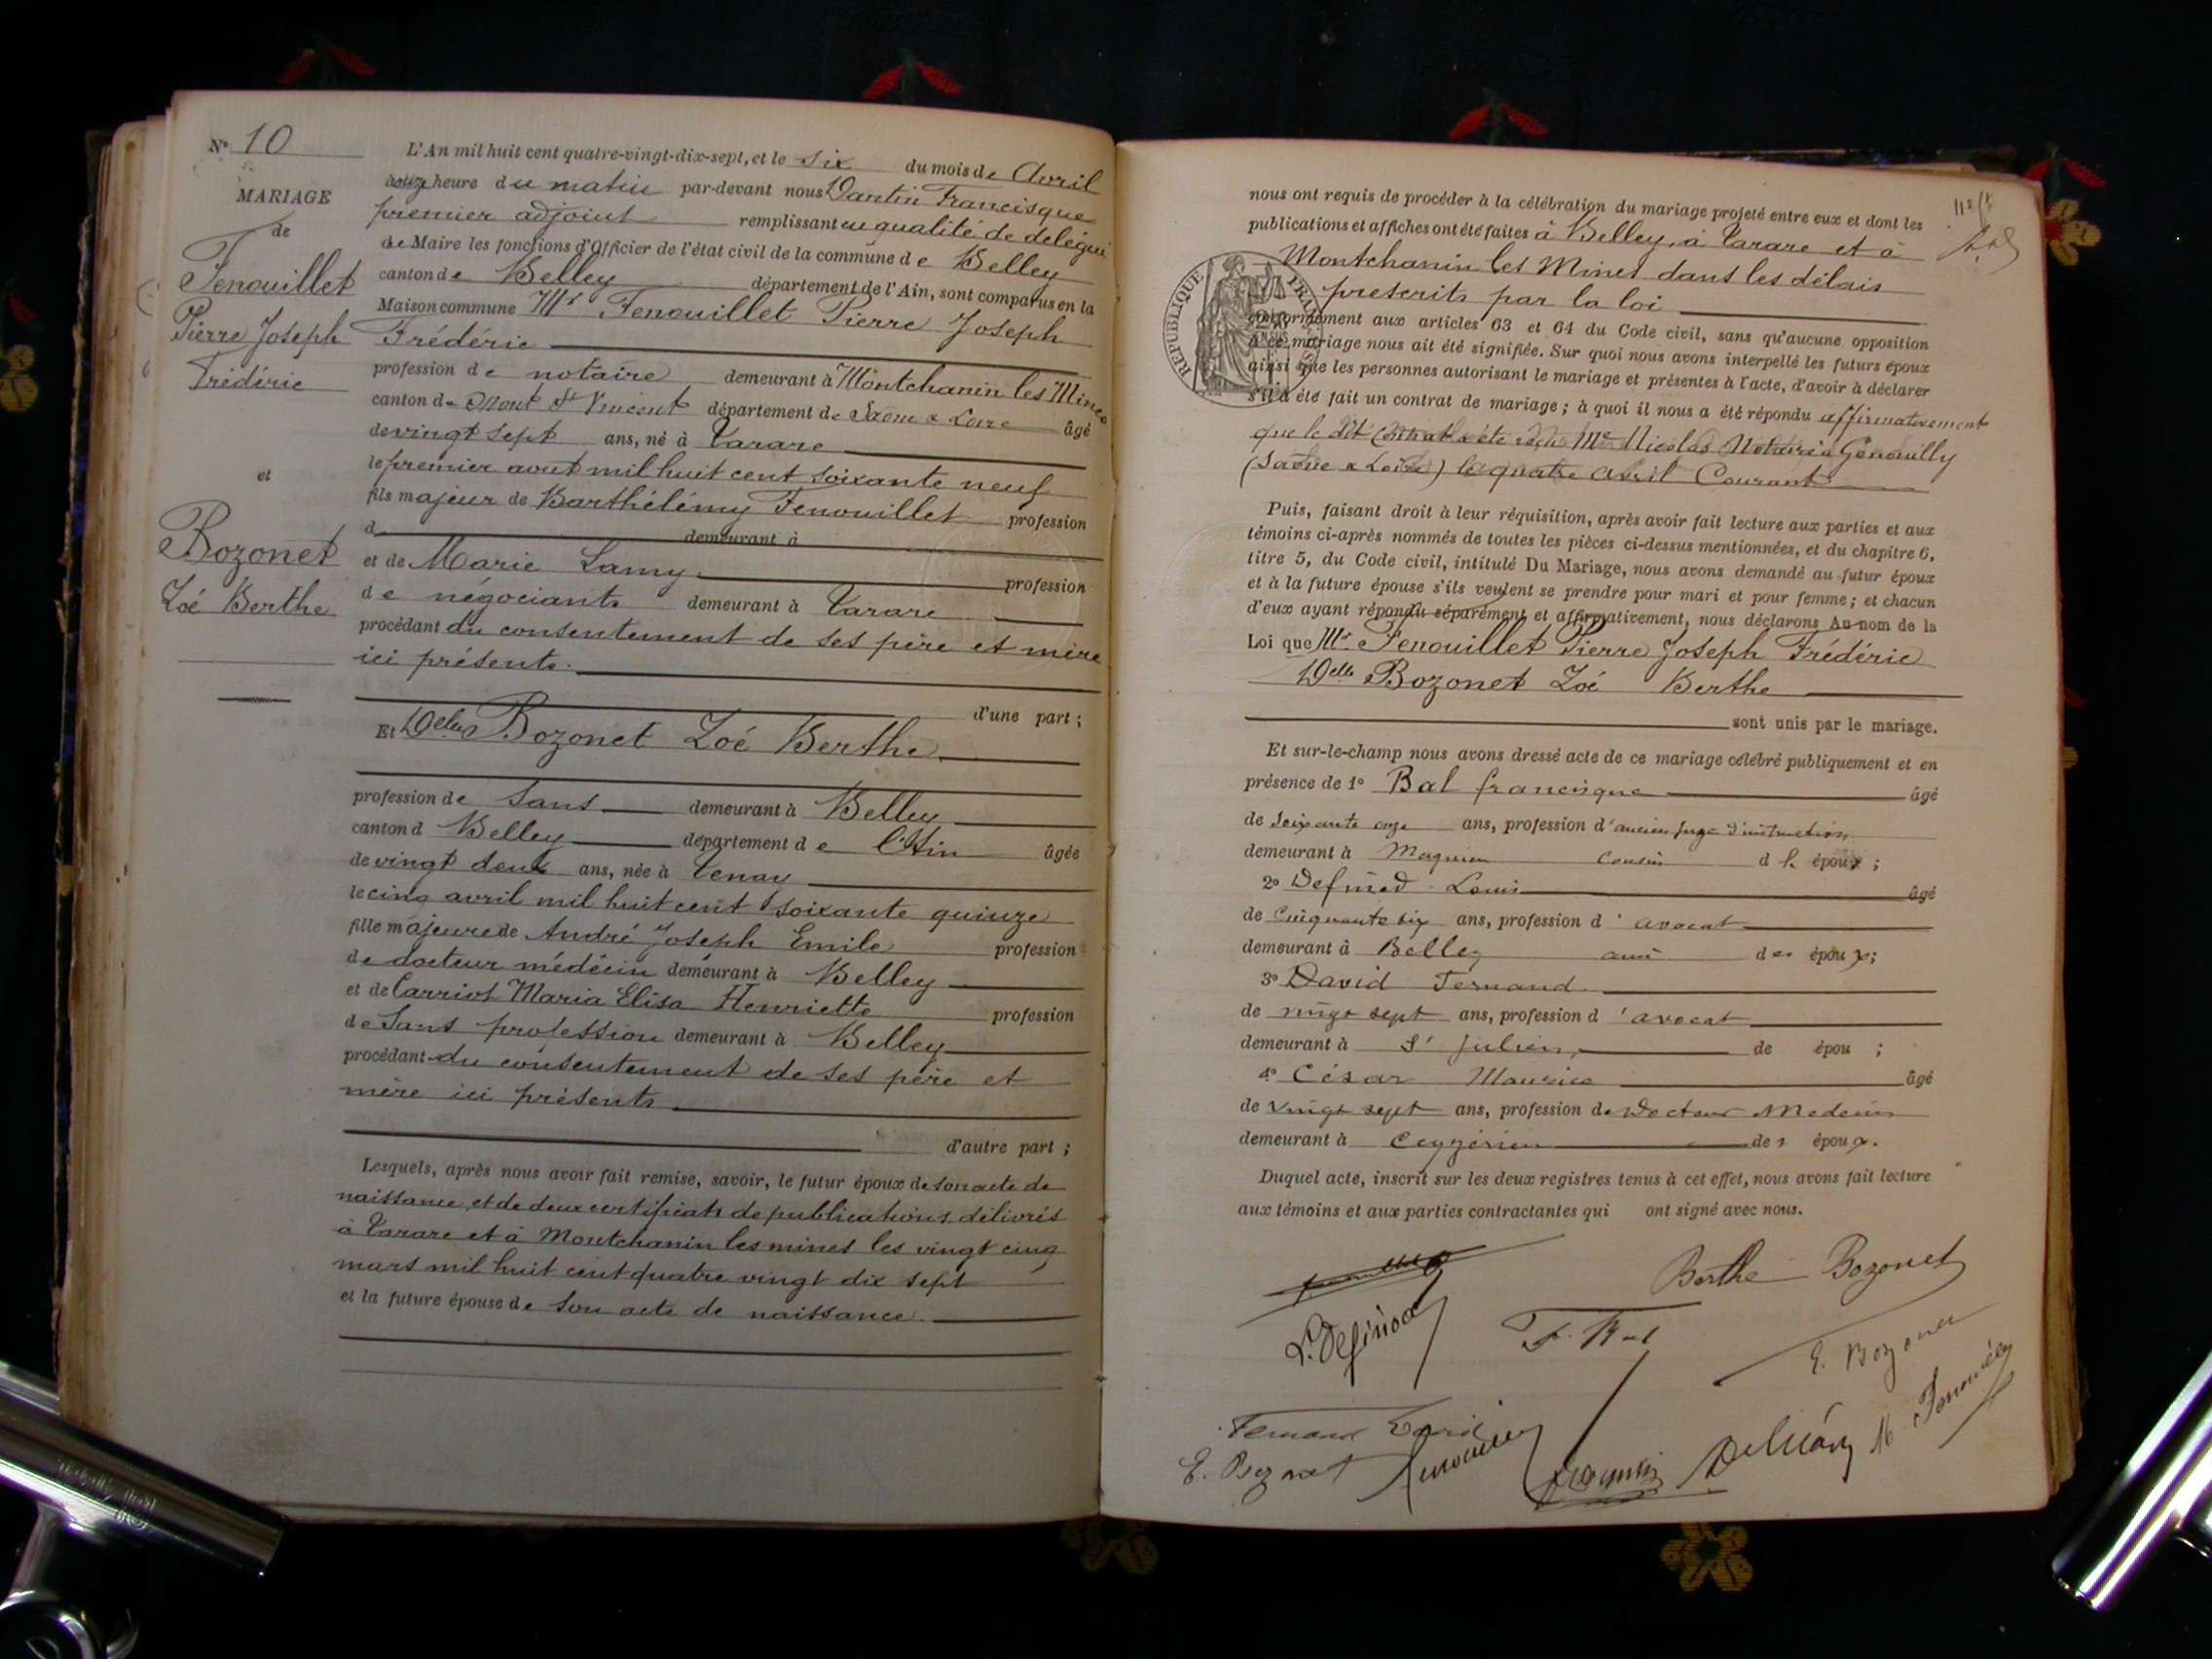 N° 10
MARIAGE
de
Fenouillet
Pierre Joseph
Frédéric
et
Bozonet
Zoé Berthe
L'An mil huit cent quatre-vingt-dix-sept, et le six du mois de Avril
à onze heure du matin par-devant nous Dantin Francisque
premier adjoint remplissant en qualité de délégué
de Maire les fonctions d'Officier de l'état civil de la commune de Belley
canton de Belley département de l'Ain, sont comparus en la
Maison commune Mr Fenouillet Pierre Joseph
Frédéric
profession de notaire demeurant à Montchanin les Mines
canton de Mont St Vincent département de Saône & Loire âgé
de vingt sept ans, né à Tarare
le premier aout mil huit cent soixante neuf
fils majeur de Barthélémy Fenouillet profession
d demeurant à
et de Marie Lamy profession
de négociants demeurant à Tarare
procédant du consentement de ses père et mère
ici présents.
d'une part ;
Et Delle Bozonet Zoé Berthe
profession de Sans demeurant à Belley
canton d Belley département de l'Ain âgée
de vingt deux ans, née à Tenay
le cinq avril mil huit cent soixante quinze
fille majeure de André Joseph Emile profession
de docteur médecin demeurant à Belley
et de Carriot Maria Elisa Henriette profession
de Sans profession demeurant à Belley
procédant du consentement de ses père et
mère ici présents
d'autre part ;
Lesquels, après nous avoir fait remise, savoir, le futur époux de son acte de
naissance et de deux certificats de publications délivrés
à Tarare et à Montchanin les mines les vingt cinq
mars mil huit cent quatre vingt dix sept
et la future épouse de son acte de naissance.
nous ont requis de procéder à la célébration du mariage projeté entre eux et dont les
publications et affiches ont été faites à Belley, à Tarare et à
Montchanin les Mines dans les délais
prescrits par la loi
RÉPUBLIQUE FRANÇAISE
conformément aux articles 63 et 64 du Code civil, sans qu'aucune opposition
à ce mariage nous ait été signifiée. Sur quoi nous avons interpellé les futurs époux
ainsi que les personnes autorisant le mariage et présentes à l'acte, d'avoir à déclarer
s'il a été fait un contrat de mariage ; à quoi il nous a été répondu affirmativement
que le dit Contrat a été Me Nicolas Notaire à Genouilly
(Saône & Loire) le quatre avril Courant
Puis, faisant droit à leur réquisition, après avoir fait lecture aux parties et aux
témoins ci-après nommés de toutes les pièces ci-dessus mentionnées, et du chapitre 6,
titre 5, du Code civil, intitulé Du Mariage, nous avons demandé au futur époux
et à la future épouse s'ils veulent se prendre pour mari et pour femme ; et chacun
d'eux ayant répondu séparément et affirmativement, nous déclarons Au nom de la
Loi que Mr Fenouillet Pierre Joseph Frédéric
Delle Bozonet Zoé Berthe
sont unis par le mariage.
Et sur-le-champ nous avons dressé acte de ce mariage célébré publiquement et en
présence de 1° Bal francisque âgé
de Soixante onze ans, profession d'ancien juge d'instruction
demeurant à cousin d époux ;
2° Louis âgé
de Cinquante six ans, profession d'avocat
demeurant à Belley ami des époux ;
3° David Fernand
de vingt sept ans, profession d'avocat
demeurant à St Julien, de épou ;
4° César Maurice âgé
de vingt sept ans, profession de Docteur Medecin
demeurant à Ceyzérieu des époux.
Duquel acte, inscrit sur les deux registres tenus à cet effet, nous avons fait lecture
aux témoins et aux parties contractantes qui ont signé avec nous.
Berthe Bozonet
F. Bal
E. Bozonet
Fernand David
M Fenouillet
E. Bozonet